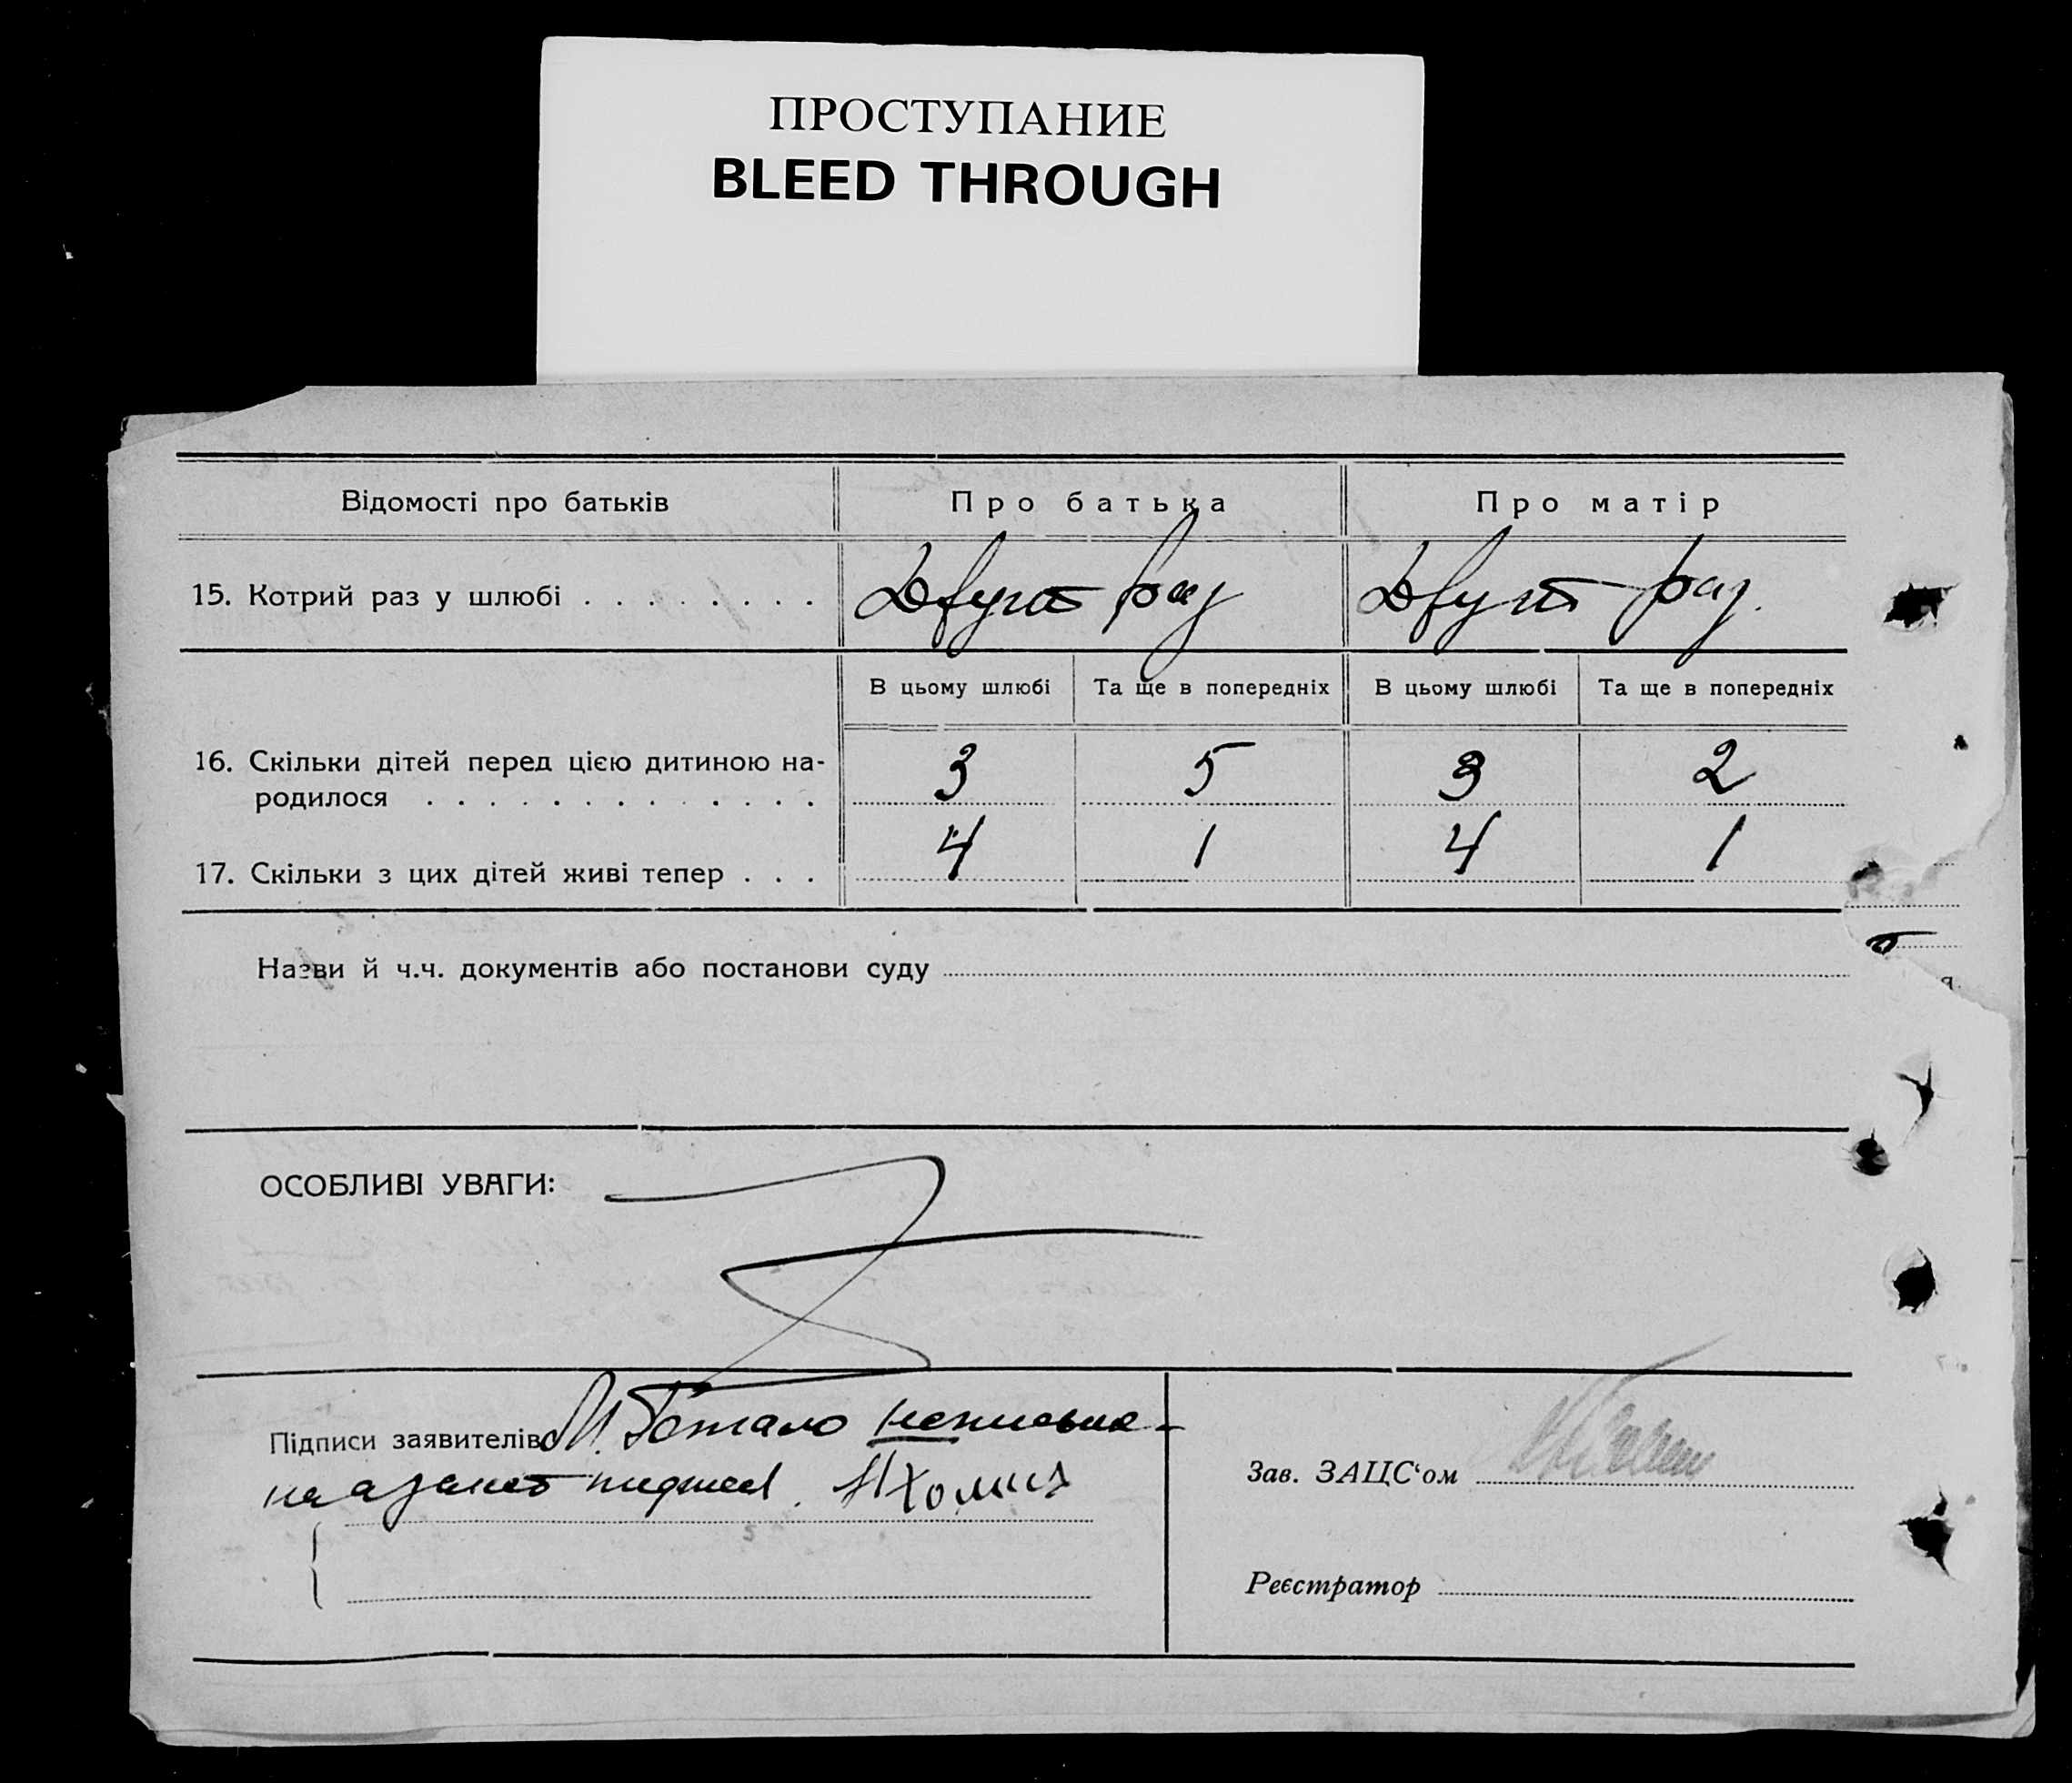 ПРОСТУПАНИЕ
BLEED THROUGH
Відомості про батьків Про батька Про матір
15. Котрий раз у шлюбі . . . . . . . . Другий раз Другий раз.
В цьому шлюбі Та ще в попередніх В цьому шлюбі Та ще в попередніх
16. Скільки дітей перед цією дитиною на-
родилося . . . . . . . . . . . . . 3 5 3 2
17. Скільки з цих дітей живі тепер . . . 4 1 4 1
Назви й ч.ч. документів або постанови суду
ОСОБЛИВІ УВАГИ:
Підписи заявителів М.
Зав. ЗАЦС‘ом
Реєстратор